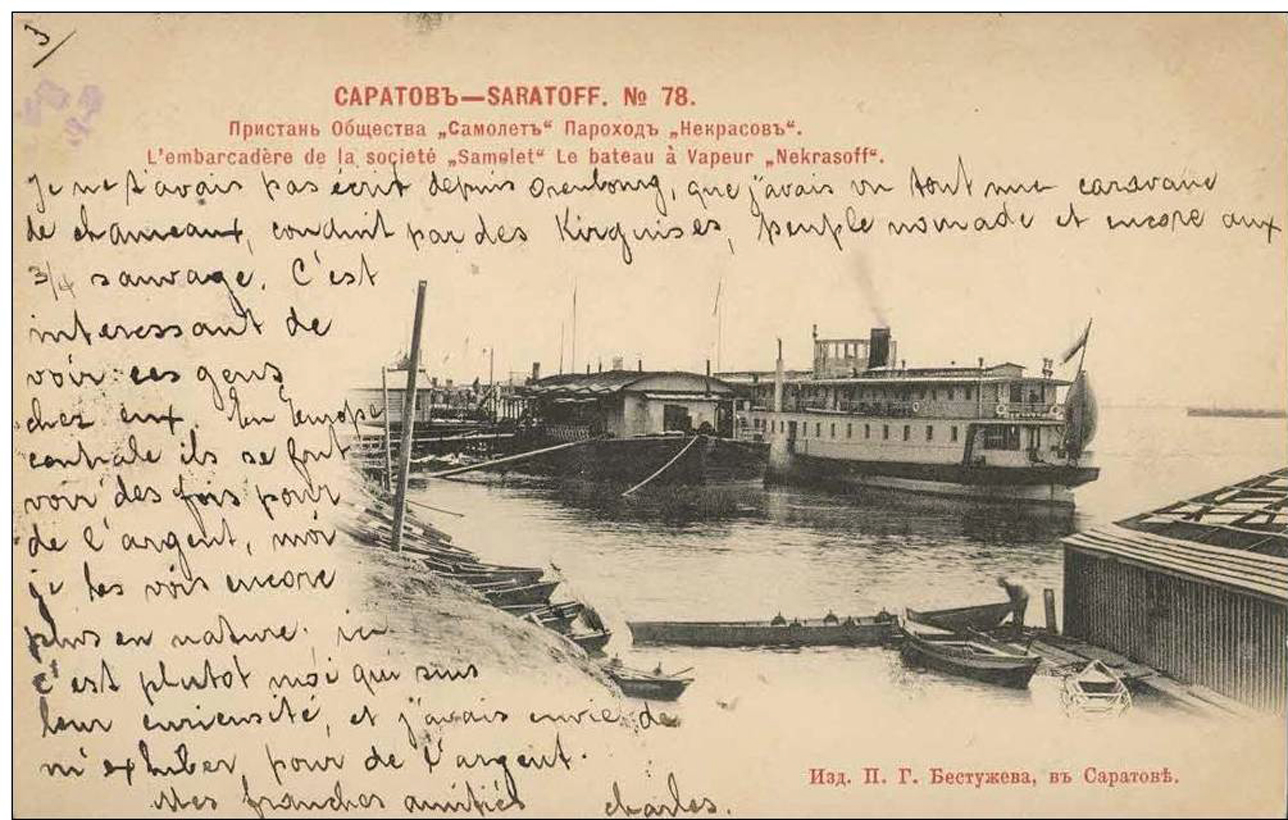 3/
САРАТОВЪ—SARATOFF. № 78.
Пристань Общества „Самолетъ“ Пароходъ „Некрасовъ“.
L'embarcadère de la société „Samolet“ Le bateau à Vapeur „Nekrasoff“.
Je ne t'avais pas écrit depuis Orenbourg, que j'avais vu tout une caravane
de chameaux, conduit par des Kirguises, peuple nomade et encore aux
3/4 sauvage. C'est
interessant de
voir ces gens
chez eux. En Europe
centrale ils se font
voir des fois pour
de l'argent, moi
je les vois encore
plus en nature; ici
c'est plutot moi qui suis
leur curiensité, et j'avais envie de
m'exhiber, pour de l'argent.
Mes franches amitiés charles.
Изд. П. Г. Бестужева, въ Саратовѣ.